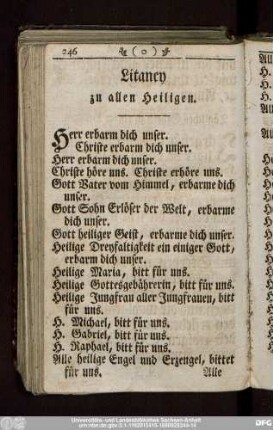 246 ( o )
Litaney
zu allen Heiligen.
Herr erbarm dich unser.
Christe erbarm dich unser.
Herr erbarm dich unser.
Christe höre uns. Christe erhöre uns.
Gott Vater vom Himmel, erbarme dich
unser.
Gott Sohn Erlöser der Welt, erbarme
dich unser.
Gott heiliger Geist, erbarme dich unser.
Heilige Dreyfaltigkeit ein einiger Gott,
erbarm dich unser.
Heilige Maria, bitt für uns.
Heilige Gottesgebährerin, bitt für uns.
Heilige Jungfrau aller Jungfrauen, bitt
für uns.
H. Michael, bitt für uns.
H. Gabriel, bitt für uns.
H. Raphael, bitt für uns.
Alle heilige Engel und Erzengel, bittet
für uns.
Alle
Universitäts- und Landesbibliothek Sachsen-Anhalt
DFG